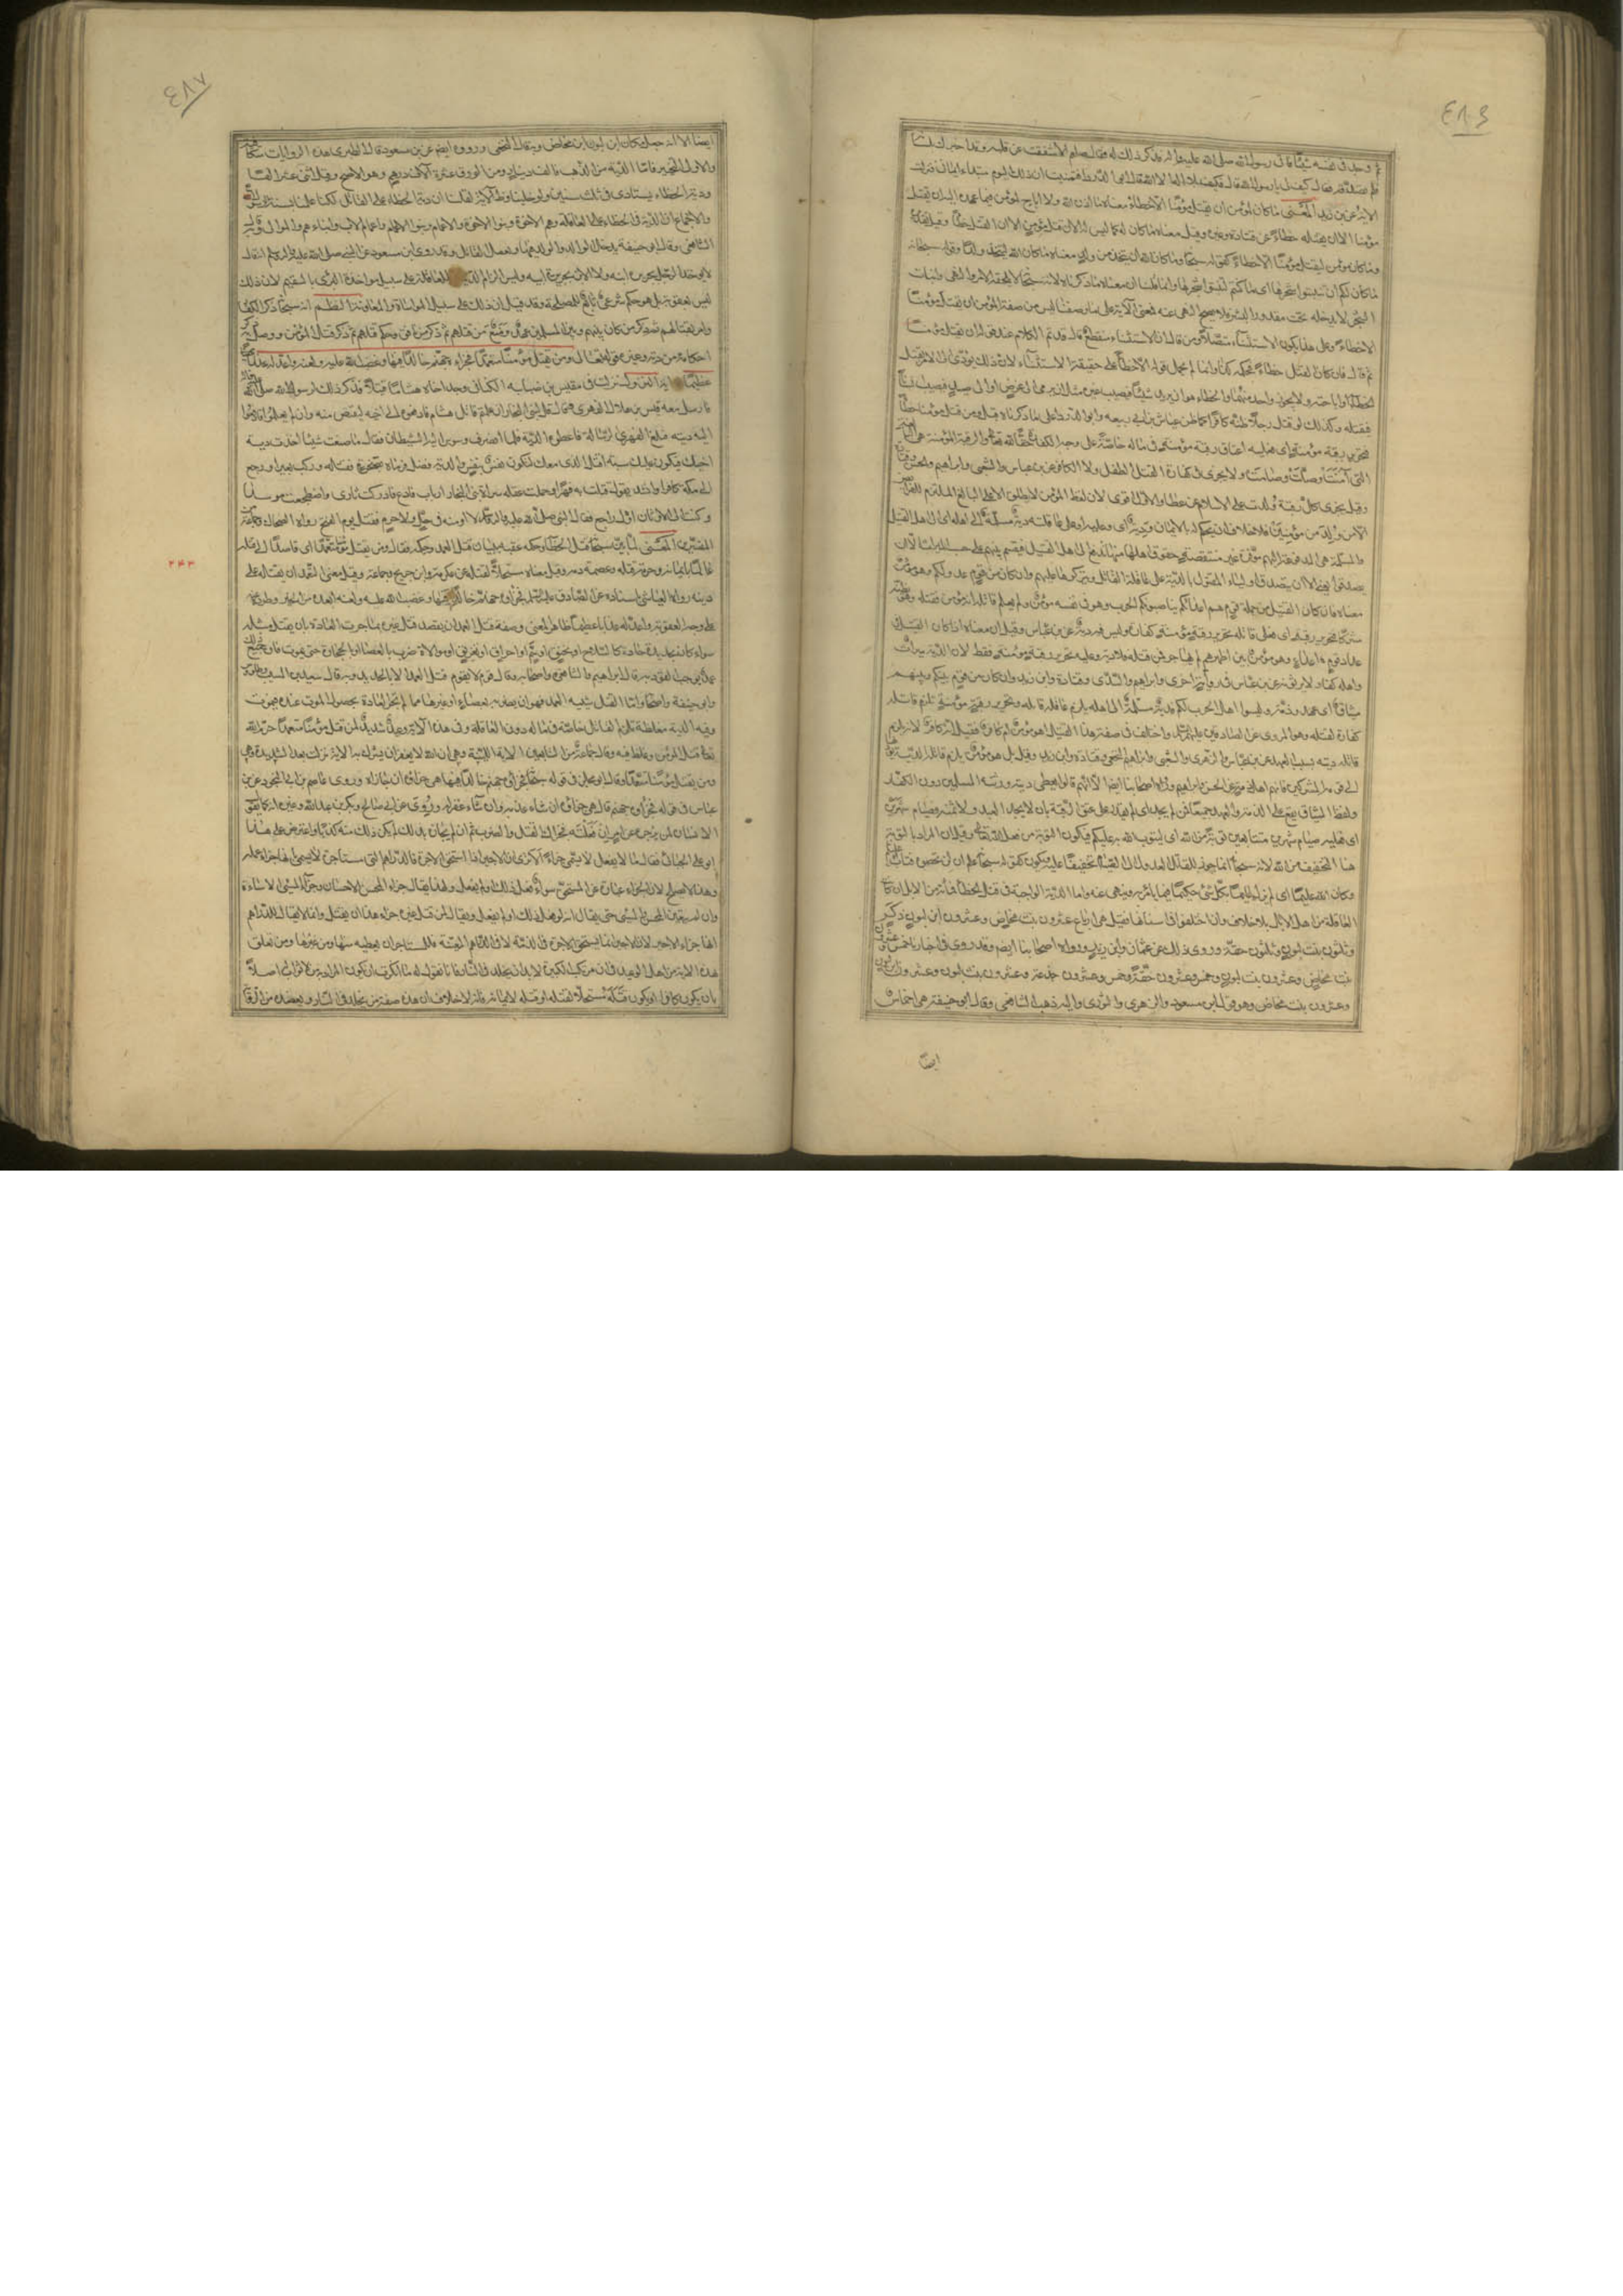 ٤٨٦
ثم وجد في نفسه شيئا فاتى رسول الله صلى الله عليه وآله فذكر ذلك له فقال صلعم الا شققت عن قلبه وقد اخبرك بلسانه
فلم تصدقه قال كيف بي يا رسول الله قال فكيف بلا اله الا الله قال ابو الدرداء فتمنيت ان ذلك اليوم مبتداء ايماني فنزلت
الآية عن ابن زيد المعنى ما كان لمؤمن ان يقتل مؤمنا الا خطاء معناه ما اذن الله ولا اباح لمؤمن فيما عهد اليه ان يقتل
مؤمنا الا ان يقتله خطاء عن قتادة وغيره وقيل معناه ما كان له كما ليس له الآن قتل مؤمن الا ان يقع القتل خطأ وقيل تقديره
وما كان مؤمن ليقتل مؤمنا الا خطاء كقوله سبحانه ما كان لله ان يتخذ من ولد معناه ما كان الله ليتخذ ولدا وقوله سبحانه
ما كان لكم ان تنبتوا شجرها اي ما كنتم لتنبتوا شجرها وانما قلنا ان معناه ما ذكرناه لان الله سبحانه لا يلحقه الامر والنهي وانبات
الشجر لا يدخل تحت مقدور البشر فلا يصح النهي عنه فمعنى الآية على ما وصفنا ليس من صفة المؤمن ان يقتل مؤمنا
الا خطاء وعلى هذا يكون الاستثناء متصلا ومن قال ان الاستثناء منقطع قال قد تم الكلام عند قوله ان يقتل مؤمنا
ثم قال فان كان القتل خطاء فحكمه كذا وانما لم يحمل قوله الا خطأ على حقيقة الاستثناء لان ذلك يؤدي الى الامر بقتل
الخطأ او اباحته ولا يجوز واحد منهما والخطاء هو ان يريد شيئا فيصيب غيره مثل ان يرمي الى غرض او الى صيد فيصيب انسانا
فيقتله وكذلك لو قتل رجلا ظنه كافرا كما ظن عياش بن ابي ربيعه وابو الدرداء على ما ذكرناه قبل ومن قتل مؤمنا خطأ
فتحرير رقبة مؤمنة اي فعليه اعتاق رقبة مؤمنة في ماله خاصة على وجه الكفارة حقا لله تعالى والرقبة المؤمنة هي البالغة
التي آمنت وصلت وصامت ولا يجزي في كفارة القتل الطفل ولا الكافر عن ابن عباس والشعبي وابراهيم والحسن وقتادة
وقيل يجزي كل رقبة ولدت على الاسلام عن عطا والاول اقوى لان لفظ المؤمن لا يطلق الا على البالغ الملتزم للفرائض
الا من ولد من مؤمنين فلا خلاف ان يحكم له بالايمان ودية اي وعليه او على عاقلته دية مسلمة الى اهله اي الى اهل القتيل
والمسلمة هي المدفوعة اليهم موفرة غير منتقصة حقوق اهلها منها تدفع الى اهل القتيل فتقسم بينهم على حساب الميراث الا ان
يصدقوا يعني الا ان يتصدق اولياء المقتول بالدية على عاقلة القاتل ويتركوها عليهم وان كان من قوم عدو لكم وهو مؤمن
معناه فان كان القتيل من جملة قوم هم اعدائكم يناصبونكم الحرب وهو في نفسه مؤمن ولم يعلم قاتله انه مؤمن فقتله وهو يظنه
مشركا فتحرير رقبة اي فعلى قاتله تحرير رقبة مؤمنة كفارة وليس فيه دية عن ابن عباس وقيل ان معناه اذا كان القتيل
عداد قوم اعداء وهو مؤمن بين اظهرهم لم يهاجر فمن قتله فلا دية وعليه تحرير رقبة مؤمنة فقط لان الدية ميراث
واهله كفار لا يرثونه عن ابن عباس في رواية اخرى وابراهيم والسدي وقتادة وابن زيد وان كان من قوم بينكم وبينهم
ميثاق اي عهد وذمة وليسوا اهل الحرب لكم فدية مسلمة الى اهله يلزم عاقلة قاتله وتحرير رقبة مؤمنة تلزم قاتله
كفارة لقتله وهو المروي عن الصادق عليه السلام واختلف في صفة هذا القتيل اهو مؤمن ام كافر فقيل انه كافر الا انه يلزم
قاتله ديته بسبب العهد عن ابن عباس والزهري والشعبي وابراهيم النخعي وقتادة وابن زيد وقيل بل هو مؤمن يلزم قاتله الدية يؤديها
الى قومه المشركين لانهم اهل ذمة عن الحسن وابراهيم ورواه اصحابنا ايضا الا انهم قالوا يعطى ديته ورثته المسلمين دون الكفار
ولفظ الميثاق يقع على الذمة والعهد جميعا فمن لم يجد اي لم يقدر على عتق الرقبة بان لا يجد العبد ولا ثمنه فصيام شهرين
اي فعليه صيام شهرين متتابعين توبة من الله اي ليتوب الله به عليكم فيكون التوبة من فعل الله وقيل ان المراد بالتوبة
هنا التخفيف من الله لان الله سبحانه انما جوز للقاتل العدول الى الصيام تخفيفا عليه ويكون كقوله سبحانه علم ان لن تحصوه فتاب عليكم
وكان الله عليما اي لم يزل عليما بكل شيء حكيما فيما يأمر به وينهى عنه واما الدية الواجبة في قتل الخطأ فمائة من الابل ان كانت
العاقلة من اهل الابل بلا خلاف وان اختلفوا في اسنانها فقيل هي ارباع عشرون بنت مخاض وعشرون ابن لبون ذكر
وثلثون بنت لبون وثلثون حقة وروي ذلك عن عثمان وابن زيد ورواه اصحابنا ايضا وقد روي في اخبارنا خمس وعشرون
بنت مخاض وعشرون بنت لبون وخمس وعشرون حقة وخمس وعشرون جذعة وعشرون بنت لبون وعشرون ابن لبون
وعشرون بنت مخاض وهو قول ابن مسعود والزهري والثوري واليه ذهب الشافعي وقال ابو حنيفة هي اخماس
ايضا
٤٨٧
ايضا الا انه جعل مكان ابن لبون ابن مخاض وبه قال النخعي ورووه ايضا عن ابن مسعود قال الطبري هذه الروايات متكافية
والاولى التخيير فاما الدية من الذهب فالف دينار ومن الورق عشرة آلاف درهم وهو الاصح وقيل اثنى عشر الفا
ودية الخطاء يستادى في ثلث سنين ولو خلينا وظاهر الآية لقلنا ان دية الخطاء على القاتل لكنا علمنا بسنة الرسول
والاجماع ان الدية في الخطاء على العاقلة وهم الاخوة وبنو الاخوة والاعمام وبنو الاعمام واعمام الاب وابناءهم والموالي وبه قال
الشافعي وقال ابو حنيفة يدخل الوالد والولد فيها ويعقل القاتل وقد روى ابن مسعود عن النبي صلى الله عليه وآله وسلم انه قال
لا يؤخذ الرجل بجريرة ابنه ولا الابن بجريرة ابيه وليس الزام الدية للعاقلة على سبيل مواخذة البري بالسقيم لان ذلك
ليس بعقوبة بل هو حكم شرعي تابع للمصلحة وقد قيل ان ذلك على سبيل المواساة والمعاونة النظم انه سبحانه ذكر الكفار
وامر بقتالهم ثم ذكر من كان بينهم وبين المسلمين عهد ومنع من قتلهم ثم ذكر من نافق وحكم قتلهم ثم ذكر قتل المؤمن ووصل به ذكر
احكامه من دية وغيرها قوله تعالى ومن يقتل مؤمنا متعمدا فجزاءه جهنم خالدا فيها وغضب الله عليه ولعنه واعد له عذابا
عظيما آية النزول نزلت في مقيس بن صبابه الكناني وجد اخاه هشاما قتيلا فذكر ذلك لرسول الله صلى الله عليه وآله
فارسل معه قيس بن هلال الفهري وقال له قل لبني النجار ان علمتم قاتل هشام فادفعوه الى اخيه ليقتص منه وان لم تعلموا فادفعوا
اليه ديته فبلغ الفهري الرسالة فاعطوه الدية فلما انصرف وسوس اليه الشيطان فقال ما صنعت شيئا اخذت دية
اخيك فيكون عليك سبة اقتل الذي معك لتكون نفس بنفس والدية فضل فرماه بصخرة فقتله وركب بعيرا ورجع
الى مكة كافرا وانشد يقول قتلت به فهرا وحملت عقله سراة بني النجار ارباب فارع فادركت ثاري واضطجعت موسدا
وكنت الى الاوثان اول راجع فقال النبي صلى الله عليه وآله لا اومنه في حل ولا حرم فقتل يوم الفتح رواه الضحاك وجماعة من
المفسرين المعنى لما بين سبحانه قتل الخطاء وحكمه عقبه ببيان قتل العمد وحكمه فقال ومن يقتل مؤمنا متعمدا اي قاصدا الى قتله
عالما بايمانه وحرمة قتله وعصمة دمه وقيل معناه مستحلا لقتله عن عكرمة وابن جريح وجماعة وقيل معنى التعمد ان يقتله على
دينه رواه العياشي باسناده عن الصادق عليه السلم فجزاؤه جهنم خالدا فيها وغضب الله عليه ولعنه ابعده من الخير وطرده عنه
على وجه العقوبة واعد له عذابا عظيما ظاهر المعنى وصفة قتل العمد ان يقصد قتل غيره بما جرت العادة بان يقتل مثله
سواء كان بحديدة حادة كالسلاح او بخنق او سم او احراق او تغريق او موالاة ضرب بالعصا او بالحجارة حتى يموت فان جميع ذلك
عمد يوجب القود وبه قال ابراهيم والشافعي واصحابه وقال قوم لا يكون قتل العمد الا بالحديد وبه قال سعيد بن المسيب وطاوس
وابو حنيفة واصحابه واما القتل شبيه العمد فهو ان يضرب بعصا او غيرها مما لم تجر العادة بحصول الموت عنده فيموت
وفيه الدية مغلظة تلزم القاتل خاصة في ماله دون العاقلة وفي هذه الآية وعيد شديد لمن قتل مؤمنا متعمدا حرم الله
به قتل المؤمن وغلظ فيه وقال جماعة من التابعين الآية اللينة وهي ان الله لا يغفر ان يشرك به الآية نزلت بعد الشديدة وهي
ومن يقتل مؤمنا متعمدا وقال ابو مجلز في قوله سبحانه فجزاؤه جهنم خالدا فيها هي جزاؤه ان جازاه وروى عاصم بن ابي النجود عن ابن
عباس في قوله فجزاؤه جهنم قال هي جزاؤه ان شاء عذبه وان شاء غفر له وروي عن ابي صالح وبكر بن عبد الله وغيره انه كما يقول
الانسان لمن يزجره عن امر ان فعلته فجزاك القتل والضرب ثم ان لم يجازه بذلك لم يكن ذلك منه كذبا واعترض على هذا
ابو علي الجبائي فقال ما لا يفعل لا يسمى جزاء الا ترى ان الاجير اذا استحق الاجرة فالدراهم التي مع مستاجره لا يسمى بانها جزاء عمله
وهذا لا يصح لان الجزاء عبارة عن المستحق سواء فعل ذلك او لم يفعل ولهذا يقال جزاء المحسن الاحسان وجزاء المسيء الاساءة
وان لم يتعين المحسن والمسيء حتى يقال انه فعل ذلك او لم يفعل ويقال لمن قتل غيره جزاء هذا ان يقتل وانما لا يقال للدراهم
انها جزاء الاجير لان الاجير انما يستحق الاجرة في الذمة لا في الدراهم المعينة فللمستاجر ان يعطيه منها ومن غيرها ومن تعلق
هذه الآية من اهل الوعيد في ان مرتكب الكبيرة لا بد ان يخلد في النار فانا نقول له ما انكرت ان يكون المراد به من لا ثواب له اصلا
بان يكون كافرا او يكون قتله مستحلا لقتله او قتله لايمانه فانه لا خلاف ان هذه صفة من يخلد في النار ويعضده من الرواية
٢٤٣